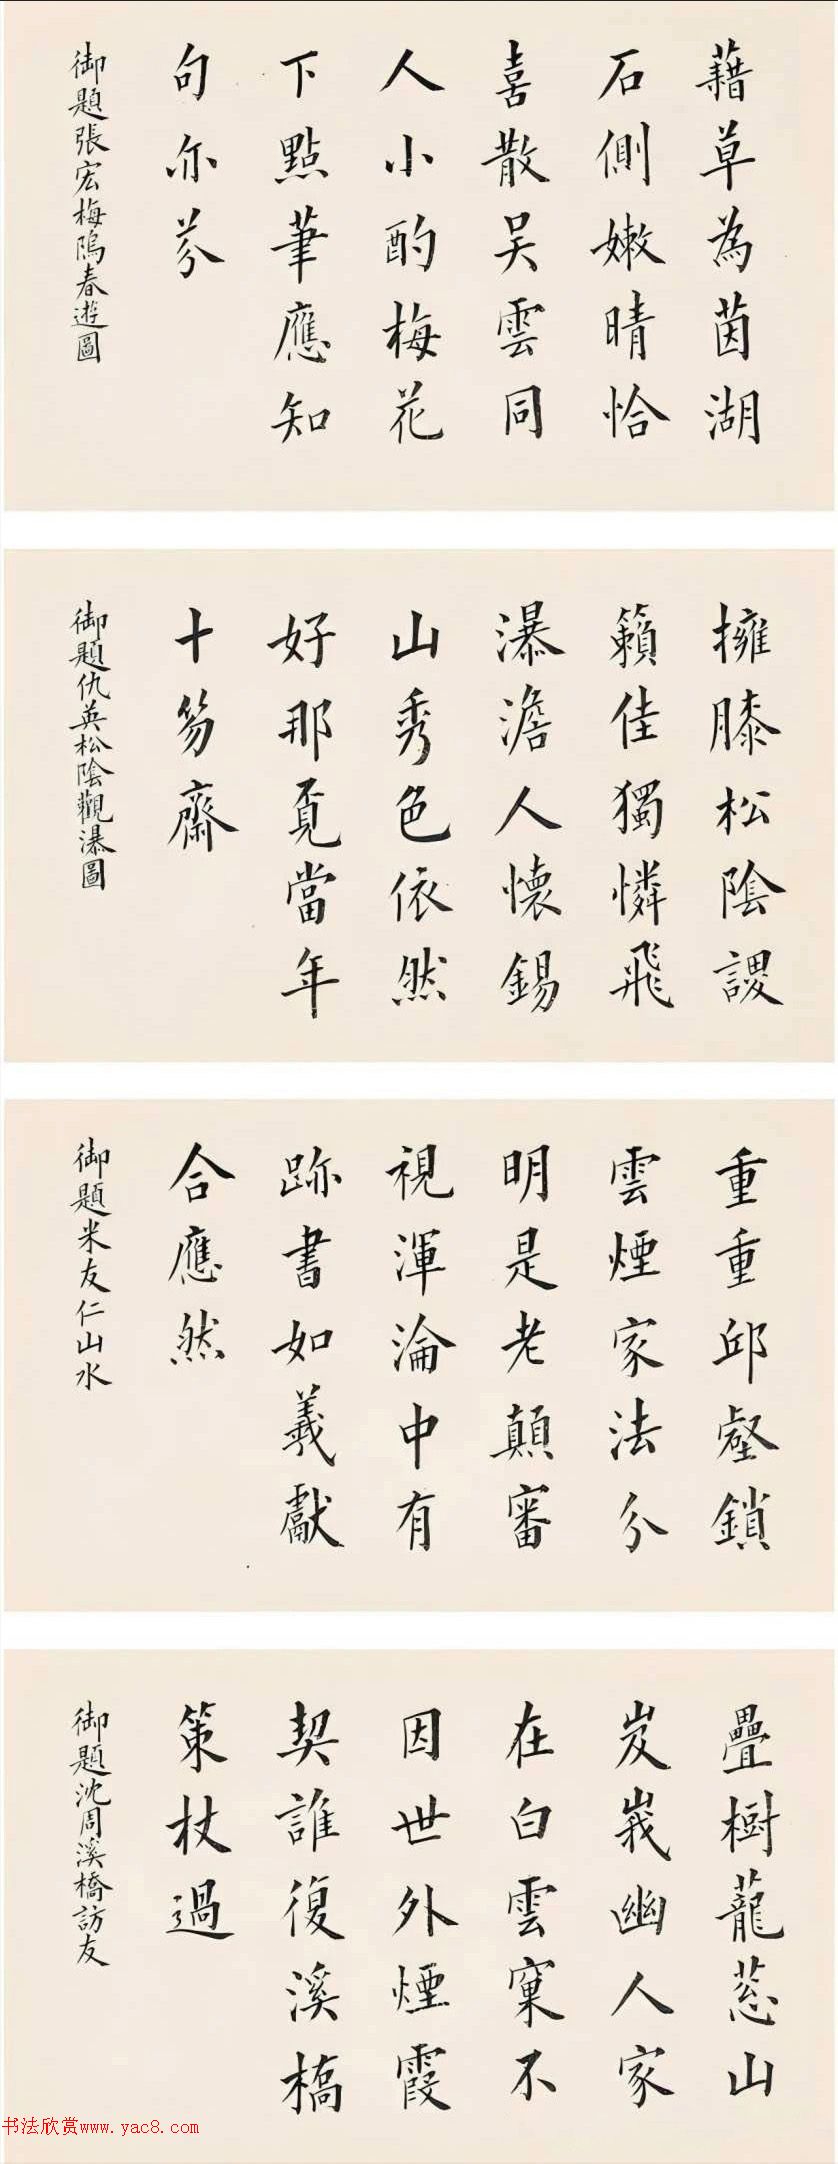 藉草為茵湖
石側嫩晴恰
喜散吴雲同
人小酌梅花
下點筆應知
句亦芬
御題張宏梅隖春遊圖
擁膝松陰謖
籟佳獨憐飛
瀑澹人懷錫
山秀色依然
好那覔當年
十笏齋
御題仇英松陰觀瀑圖
重重邱壑鎖
雲煙家法分
明是老顛審
視渾淪中有
跡書如羲獻
合應然
御題米友仁山水
疊樹蘢蔥山
岌峩幽人家
在白雲窠不
因世外煙霞
契誰復溪橋
策杖過
御題沈周溪橋訪友
书法欣赏www.yac8.com